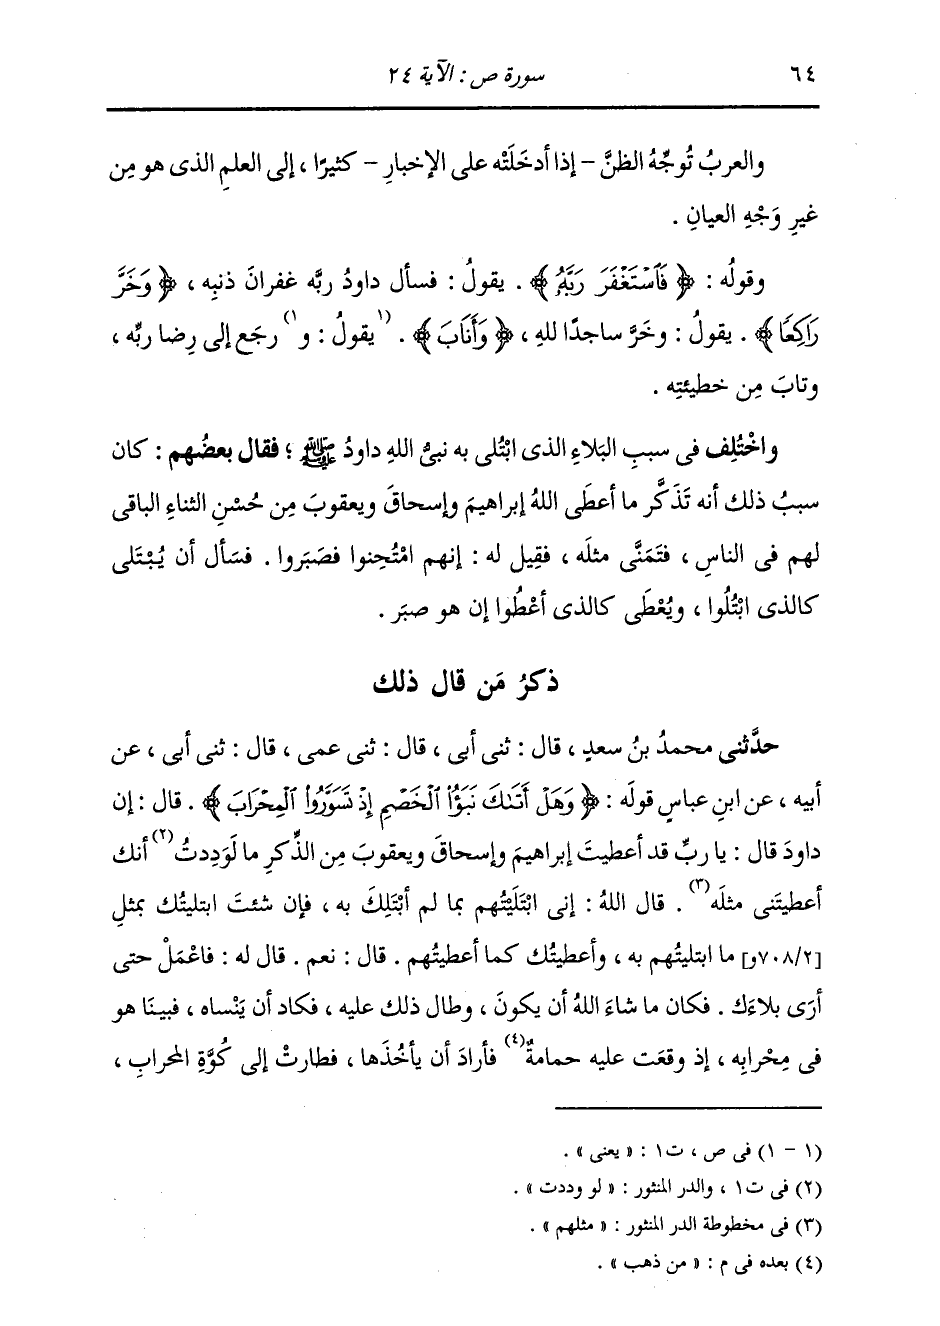 ٦٤ سورة ص : الآية ٢٤
والعربُ تُوجِّهُ الظنَّ - إذا أدخَلَتْه على الإخبارِ - كثيرًا ، إلى العلمِ الذى هو مِن
غيرِ وَجْهِ العيانِ .
وقولُه : ﴿ فَٱسْتَغْفَرَ رَبَّهُۥ ﴾ . يقولُ : فسأل داودُ ربَّه غفرانَ ذنبِه ، ﴿ وَخَرَّ
رَاكِعًا ﴾ . يقولُ : وخَرَّ ساجدًا للهِ ، ﴿ وَأَنَابَ ﴾ . (١يقولُ : و١) رجَع إلى رِضا ربِّه ،
وتابَ مِن خطيئتِه .
واخْتُلِف فى سببِ البَلاءِ الذى ابْتُلى به نبىُّ اللهِ داودُ ﷺ ؛ فقال بعضُهم : كان
سببُ ذلك أنه تَذَكَّر ما أعطَى اللهُ إبراهيمَ وإسحاقَ ويعقوبَ مِن حُسْنِ الثناءِ الباقى
لهم فى الناسِ ، فتَمَنَّى مثلَه ، فقِيل له : إنهم امْتُحِنوا فصَبَروا . فسَأل أن يُبْتَلى
كالذى ابْتُلُوا ، ويُعْطَى كالذى أعْطُوا إن هو صبَر .
ذكرُ مَن قال ذلك
حدَّثنى محمدُ بنُ سعدٍ ، قال : ثنى أبى ، قال : ثنى عمى ، قال : ثنى أبى ، عن
أبيه ، عن ابنِ عباسٍ قولَه : ﴿ وَهَلْ أَتَىٰكَ نَبَؤُا۟ ٱلْخَصْمِ إِذْ تَسَوَّرُوا۟ ٱلْمِحْرَابَ ﴾ . قال : إن
داودَ قال : يا ربِّ قد أعطيتَ إبراهيمَ وإسحاقَ ويعقوبَ مِن الذِّكرِ ما لَوَدِدتُ(٢) أنك
أعطيتَنى مثلَه(٣) . قال اللهُ : إنى ابْتَلَيْتُهم بما لم أبْتَلِكَ به ، فإن شئتَ ابتليتُك بمثلِ
[٧٠٨/٢و] ما ابتليتُهم به ، وأعطيتُك كما أعطيتُهم . قال : نعم . قال له : فاعْمَلْ حتى
أرَى بلاءَك . فكان ما شاءَ اللهُ أن يكونَ ، وطال ذلك عليه ، فكاد أن يَنْساه ، فبينَا هو
فى مِحْرابِه ، إذ وقعَت عليه حمامةٌ(٤) فأرادَ أن يأخُذَها ، فطارتْ إلى كُوَّةِ المحرابِ ،
(١ - ١) فى ص ، ت١ : « يعنى » .
(٢) فى ت١ ، والدر المنثور : « لو وددت » .
(٣) فى مخطوطة الدر المنثور : « مثلهم » .
(٤) بعده فى م : « من ذهب » .